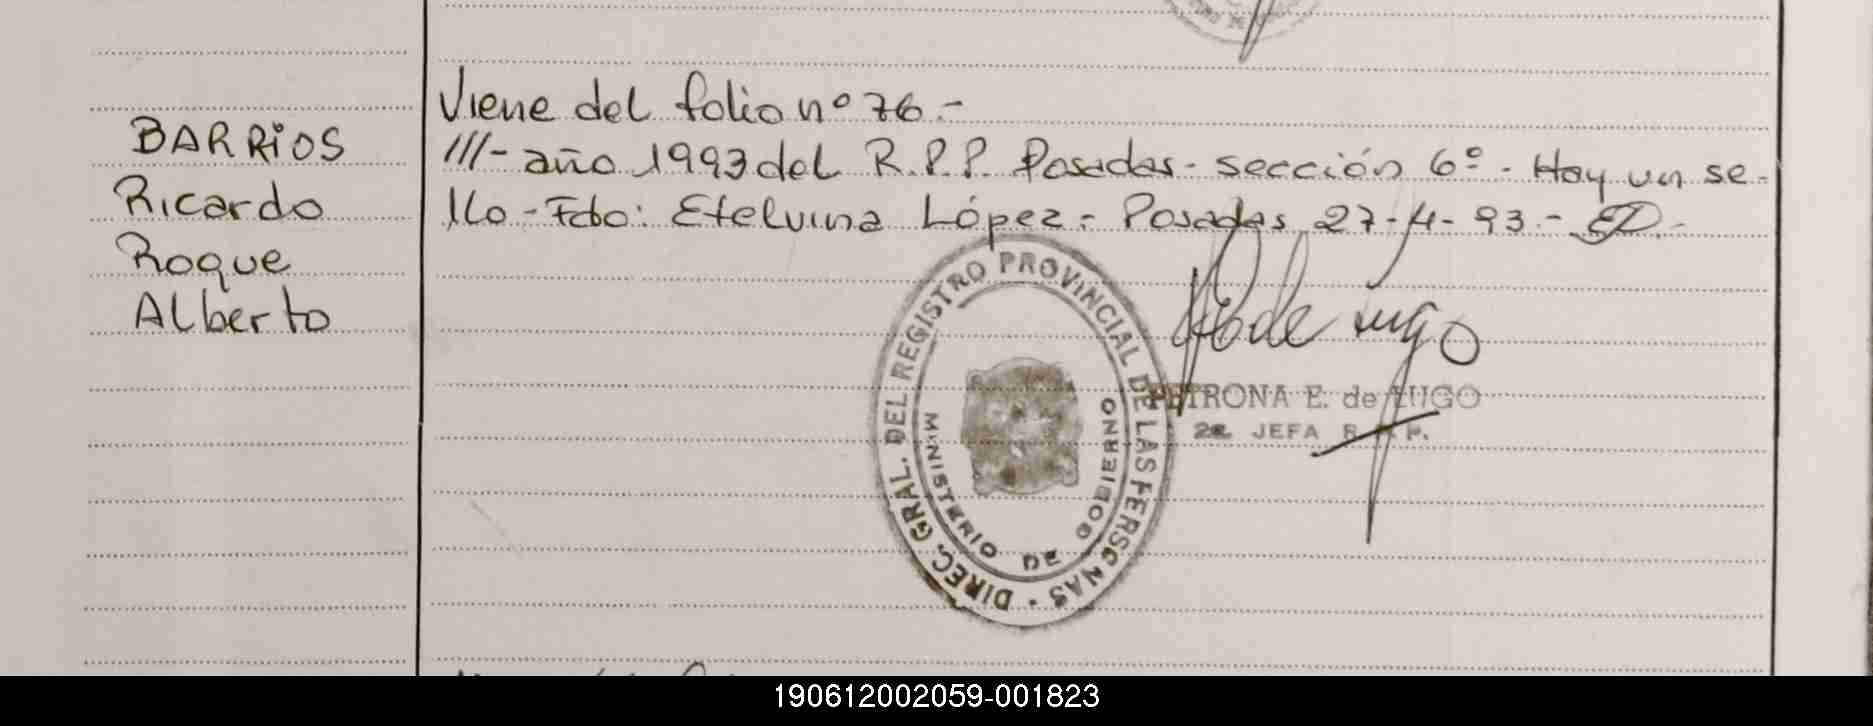 BARRiOS
Ricardo
Roque
Alberto
Viene del folio nº 76.-
///- año 1993 del R.P.P. Posadas- sección 6º - Hay un se-
llo - Fdo: Etelvina López - Posadas 27-4-93.-
DIREC. GRAL. DEL REGISTRO PROVINCIAL DE LAS PERSONAS
MINISTERIO DE GOBIERNO
PETRONA E. de LUGO
2a. JEFA R.P.P.
190612002059-001823